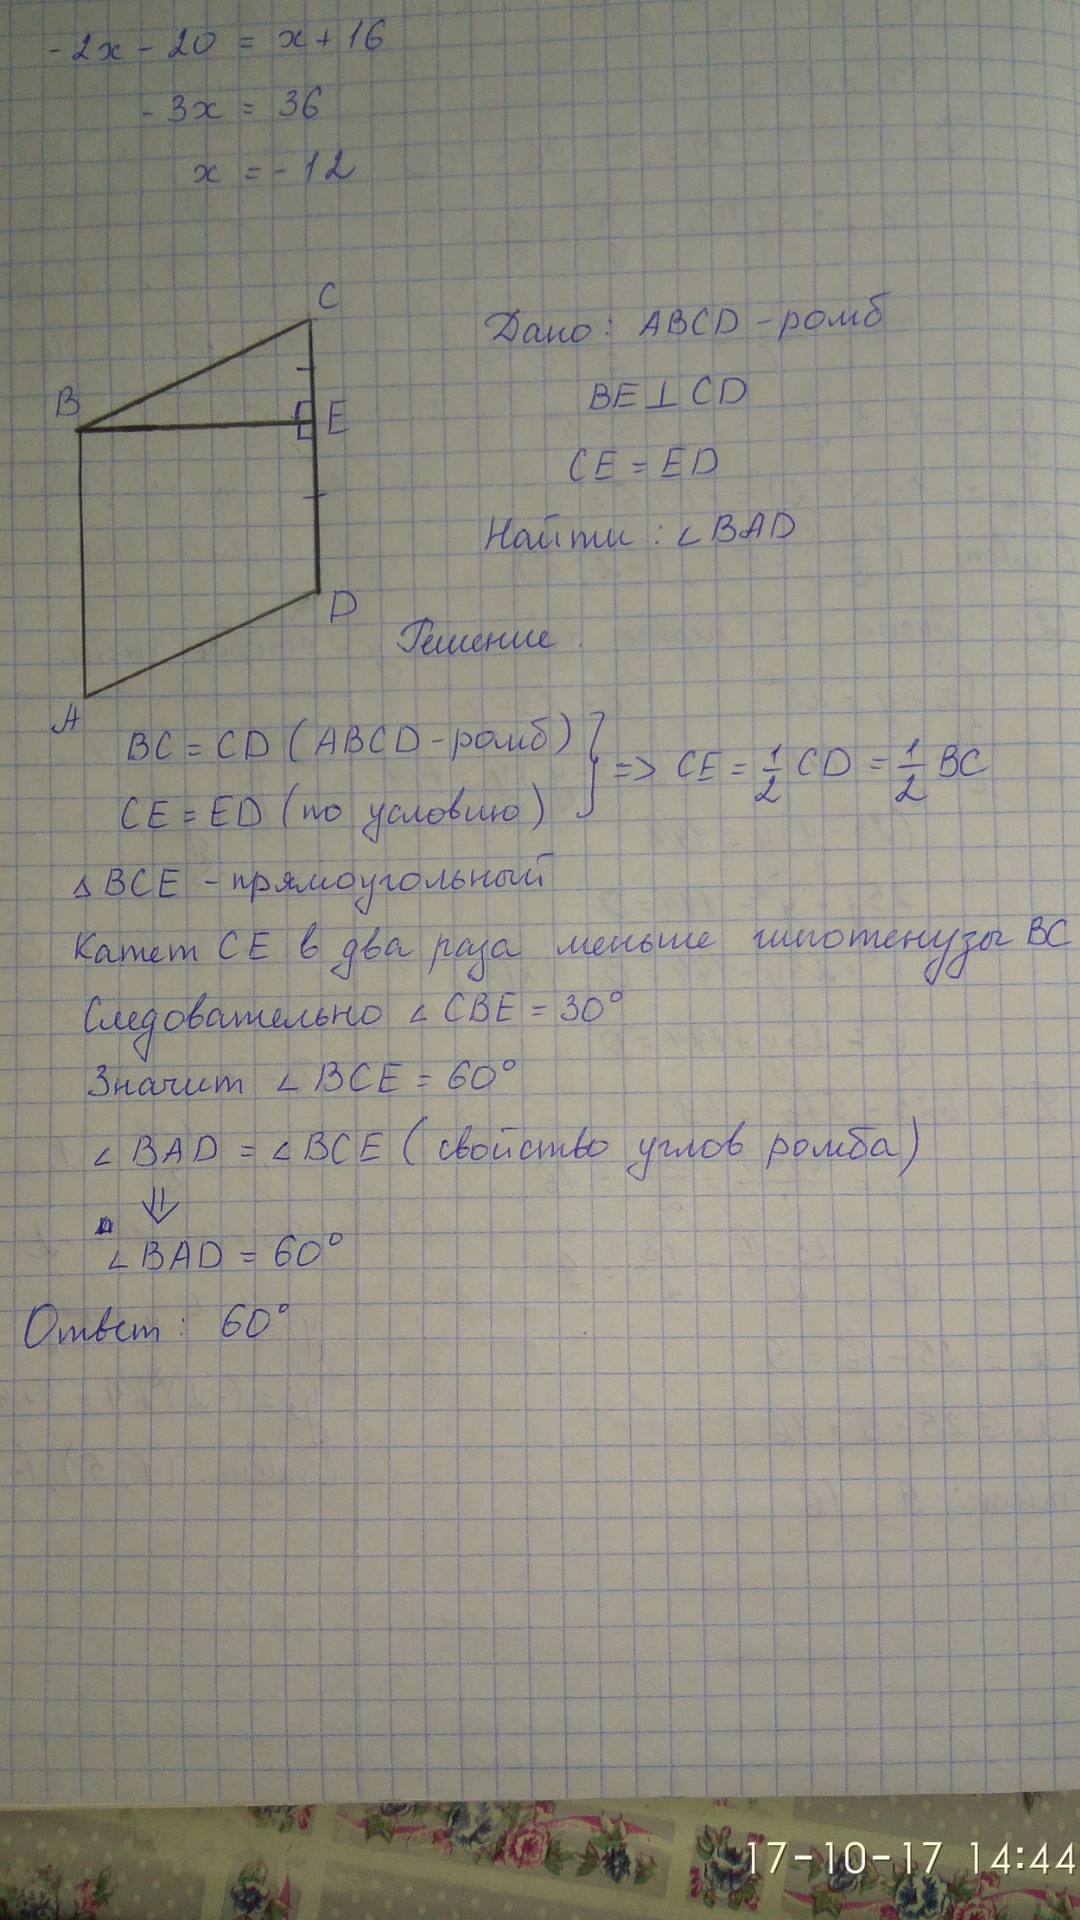 -2x - 20 = x + 16
-3x = 36
x = -12
C
B
E
D
A
Дано: ABCD - ромб
BE ⊥ CD
CE = ED
Найти: ∠BAD
Решение.
BC = CD (ABCD - ромб)
CE = ED (по условию)
} => CE = 1/2 CD = 1/2 BC
△BCE - прямоугольный
Катет CE в два раза меньше гипотенузы BC
Следовательно ∠CBE = 30°
Значит ∠BCE = 60°
∠BAD = ∠BCE (свойство углов ромба)
⇓
∠BAD = 60°
Ответ: 60°
17-10-17 14:44